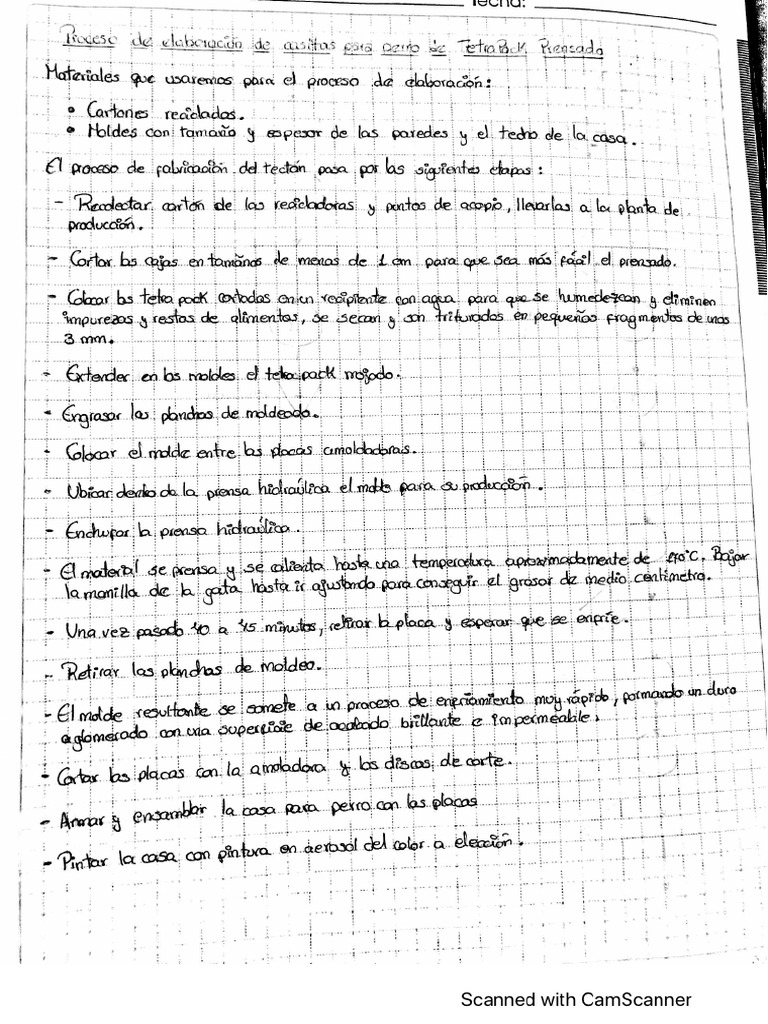 fecha:
Proceso de elaboración de casitas para perro de TetraPack Prensado
Materiales que usaremos para el proceso de elaboración:
• Cartones reciclados.
• Moldes con tamaño y espesor de las paredes y el techo de la casa.
El proceso de fabricación del tectán pasa por las siguientes etapas:
- Recolectar cartón de las recicladoras y puntos de acopio, llevarlas a la planta de
producción.
- Cortar las cajas en tamaños de menos de 1 cm para que sea más fácil el prensado.
- Colocar los tetra pack cortados en un recipiente con agua para que se humedezcan y eliminen
impurezas y restos de alimentos, se secan y son triturados en pequeños fragmentos de unos
3 mm.
- Extender en los moldes el tetra pack mojado.
- Engrasar las planchas de moldeado.
- Colocar el molde entre las placas amoldadoras.
- Ubicar dentro de la prensa hidraúlica el molde para su producción.
- Enchufar la prensa hidraúlica.
- El material se prensa y se calienta hasta una temperatura aproximadamente de °C. Bajar
la manilla de la gata hasta ir ajustando para conseguir el grosor de medio centímetro.
- Una vez pasado 40 a 45 minutos, retirar la placa y esperar que se enfríe.
- Retirar las planchas de moldeo.
- El molde resultante se somete a un proceso de enfriamiento muy rápido, formando un duro
aglomerado con una superficie de acabado brillante e impermeable.
- Cortar las placas con la amoladora y los discos de corte.
- Armar y ensamblar la casa para perro con las placas
- Pintar la casa con pintura en aerosol del color a elección.
Scanned with CamScanner